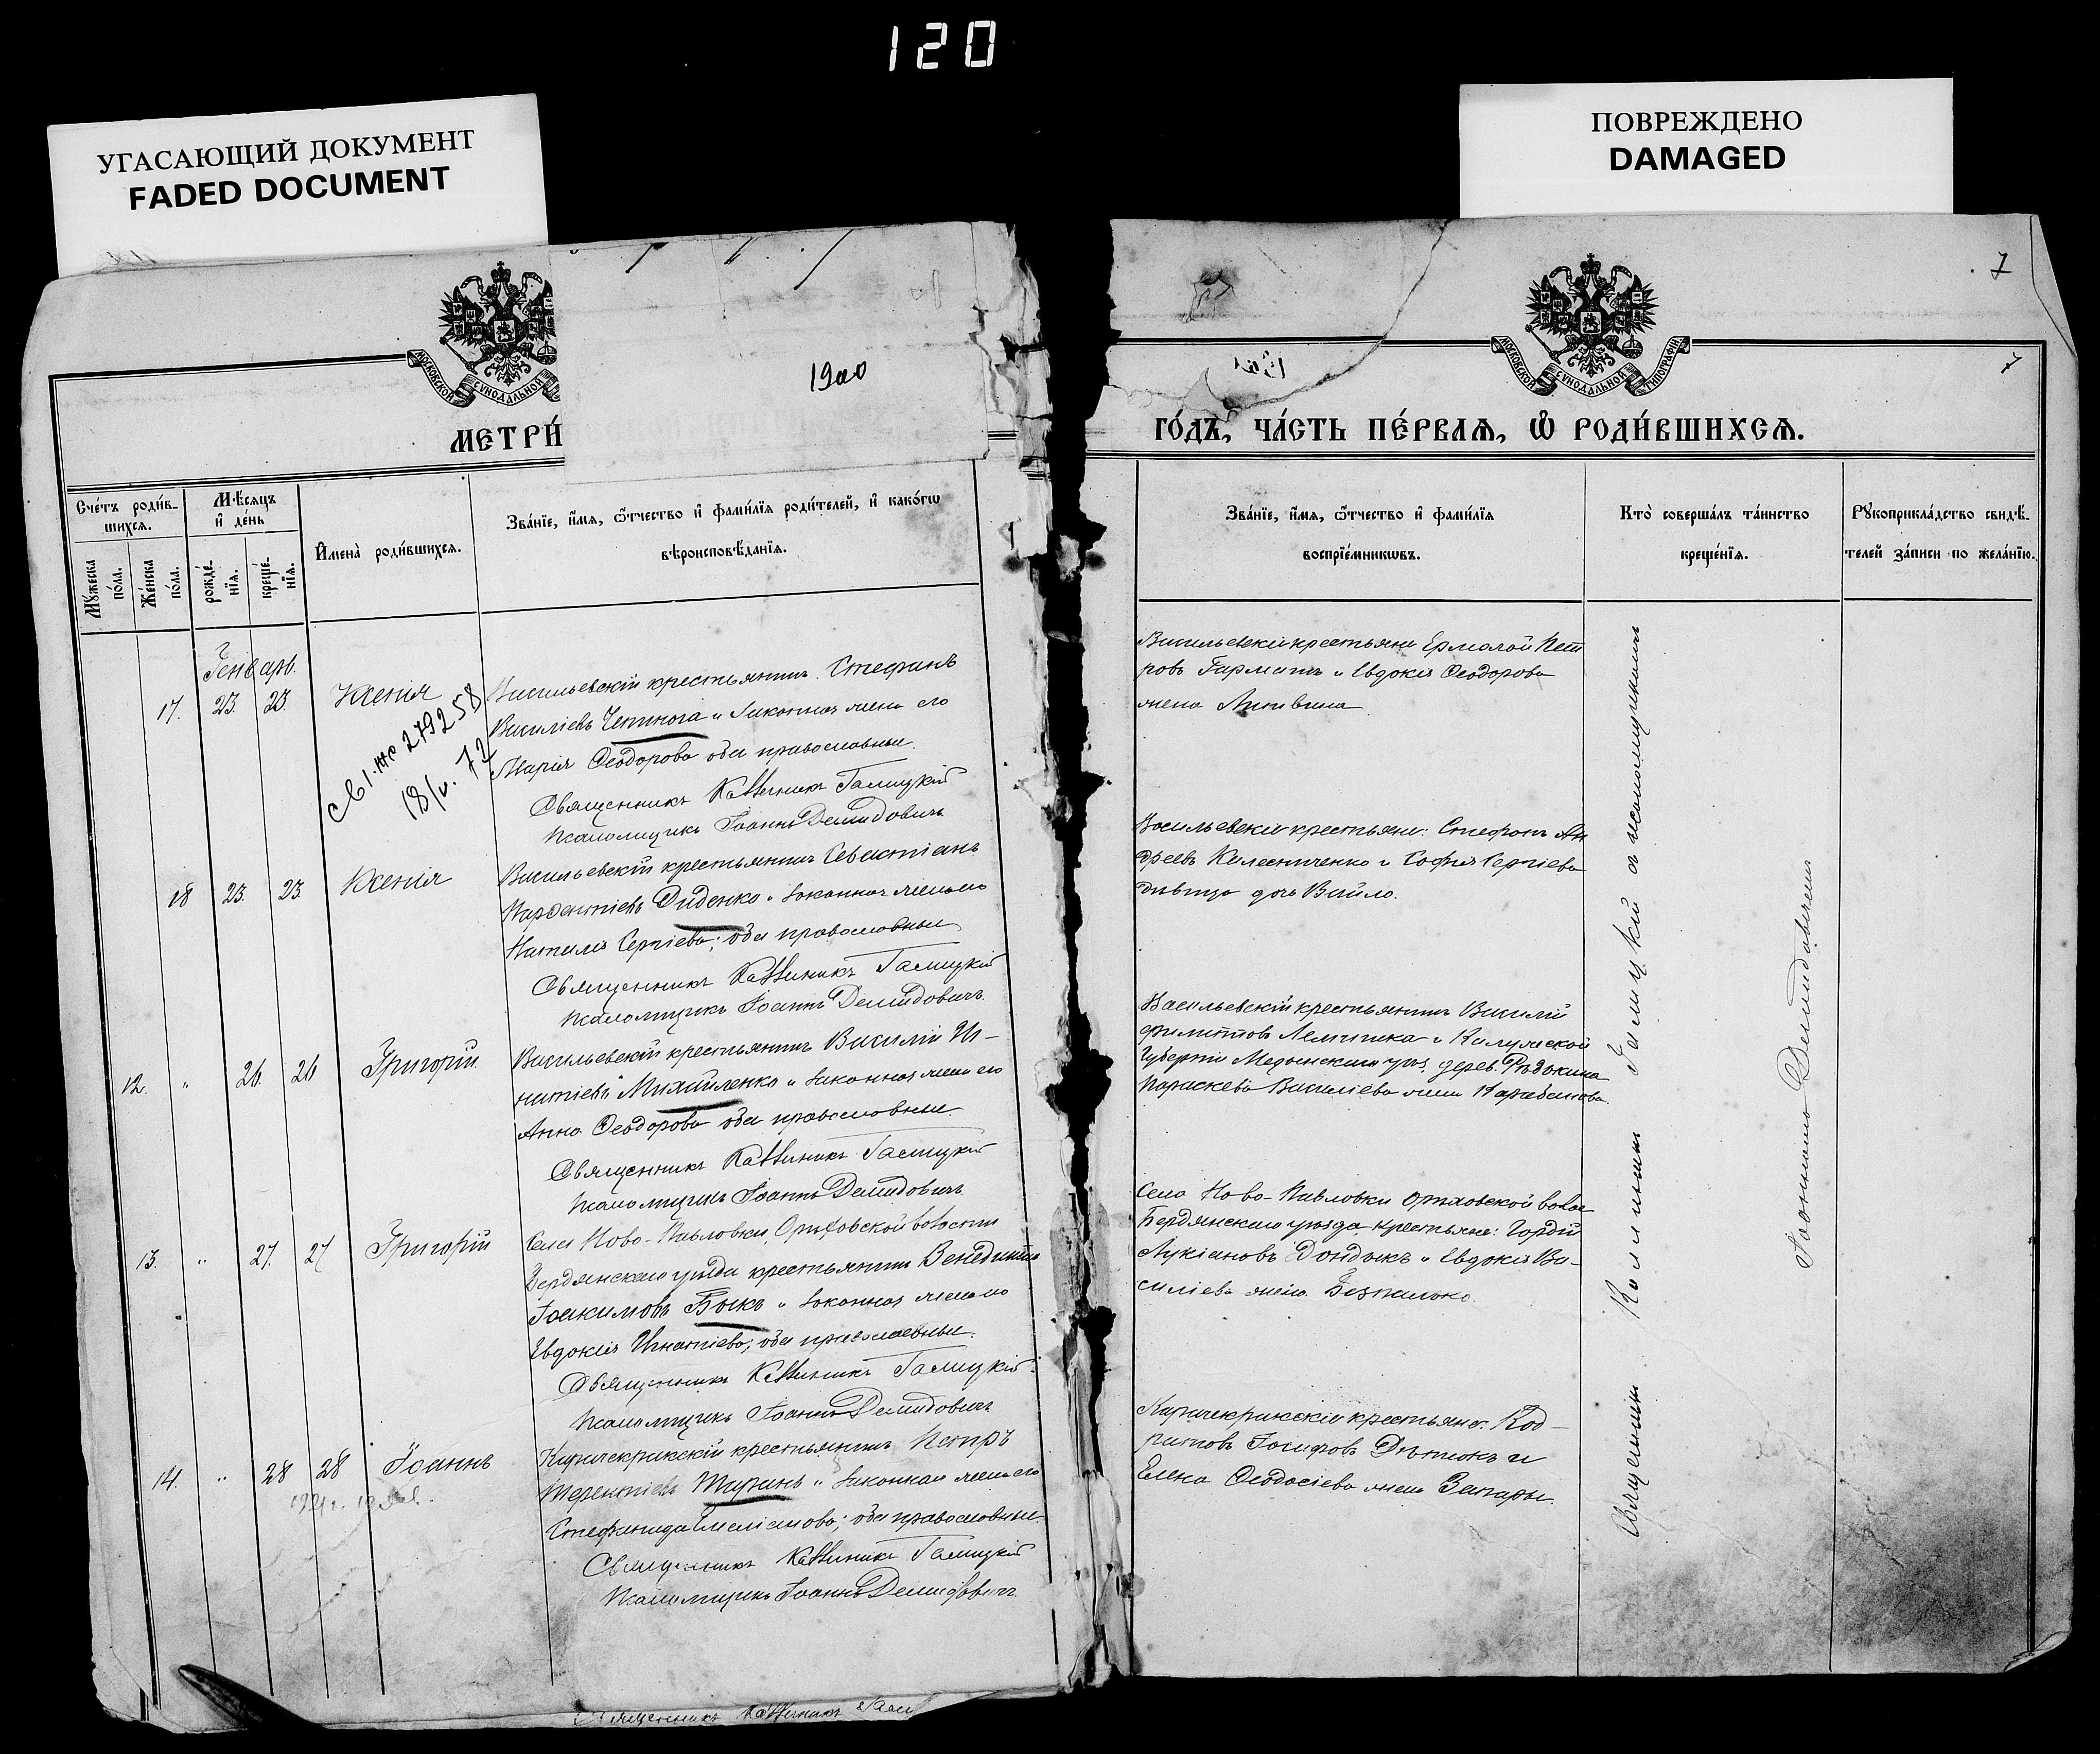 120
УГАСАЮЩИЙ ДОКУМЕНТ
FADED DOCUMENT
ПОВРЕЖДЕНО
DAMAGED
7
7
МОСКОВСКОЙ СѴНОДАЛЬНОЙ
МОСКОВСКОЙ СѴНОДАЛЬНОЙ ТИПОГРАФІИ
1900
МЕТРИ́
ГО́ДЪ, ЧА́СТЬ ПЕ́РВАЯ, Ѡ҆ РОДИ́ВШИХСЯ.
Сче́тъ роди́в-
шихся.
Мꙋ́жеска по́ла.
Же́нска по́ла.
Мѣ́сяцъ
и҆ де́нь
рожде́-
нїя.
креще́-
нїя.
И҆мена̀ роди́вшихся.
Зва́нїе, и҆́мя, ѻ҆́тчество и҆ фами́лїя роди́телей, и҆ како́гѡ
вѣроисповѣ́данїя.
Зва́нїе, и҆́мя, ѻ҆́тчество и҆ фами́лїя
воспрїе́мникѡвъ.
Кто̀ соверша́лъ та́инство
креще́нїя.
Рꙋкоприкла́дство свидѣ́-
телей за́писи по жела́нїю.
Генварь.
17. 23. 23. Ксенія
Васильевскій крестьянинъ Стефанъ
Василіевъ Чепинога и законная жена его
Марія Ѳеодорова оба православные.
Священникъ Каллиникъ Галицкій
Псаломщикъ Іоаннъ Демидовичъ
св I-же 279258
18/v. 72
Васильевскіи крестьяне Ермолай Пет
ровъ Гармашъ и Евдокія Ѳеодорова
жена Литвина
18 23. 23. Ксенія
Васильевскій крестьянинъ Севастіанъ
Диденко и законная жена его
Наталія Сергіева; оба православные
Священникъ Каллиникъ Галицкій
Псаломщикъ Іоаннъ Демидовичъ
Васильевскіи крестьяне: Стефанъ Ан
дреевъ Колесниченко и Софія Сергіева
дѣвица дочь Вайло.
12. " 26. 26 Григорій.
Васильевскій крестьянинъ Василій Иг-
натіевъ Михайленко и законная жена его
Анна Ѳеодорова оба православные
Священникъ Каллиникъ Галицкій
Псаломщикъ Іоаннъ Демидовичъ
Васильевскій крестьянинъ Василій
Филипповъ и Калужской
Губерніи Медынскаго уѣз. дерев.
Параскева Василіева жена
13. " 27. 27 Григорій
Села Ново-Павловки, Орѣховской волости
Бердянскаго уѣзда крестьянинъ Венедиктъ
Іоакимовъ Быкъ и законная жена его
Евдокія Игнатіева; оба православные.
Священникъ Каллиникъ Галицкій
Псаломщикъ Іоаннъ Демидовичъ
Села Ново-Павловки Орѣховской волос
Бердянскаго уѣзда крестьяне: Гордій
Лукіановъ Дондыкъ и Евдокія Ва-
силіева жена Безпалько.
14. " 28 28 Іоаннъ
Карачекракскій крестьянинъ Петръ
Терентіевъ Тиранъ и законная жена его
Стефанида Емеліанова; оба православные.
Священникъ Каллиникъ Галицкій
Псаломщикъ Іоаннъ Демидовичъ
Карачекракскіе крестьяне: Код-
ратовъ Іосифовъ и
Елена Ѳеодосіева жена Запары.
Священникъ Каллиникъ Галицкій съ псаломщикомъ
Іоанномъ Демидовичемъ
Священникъ Каллиникъ Гали